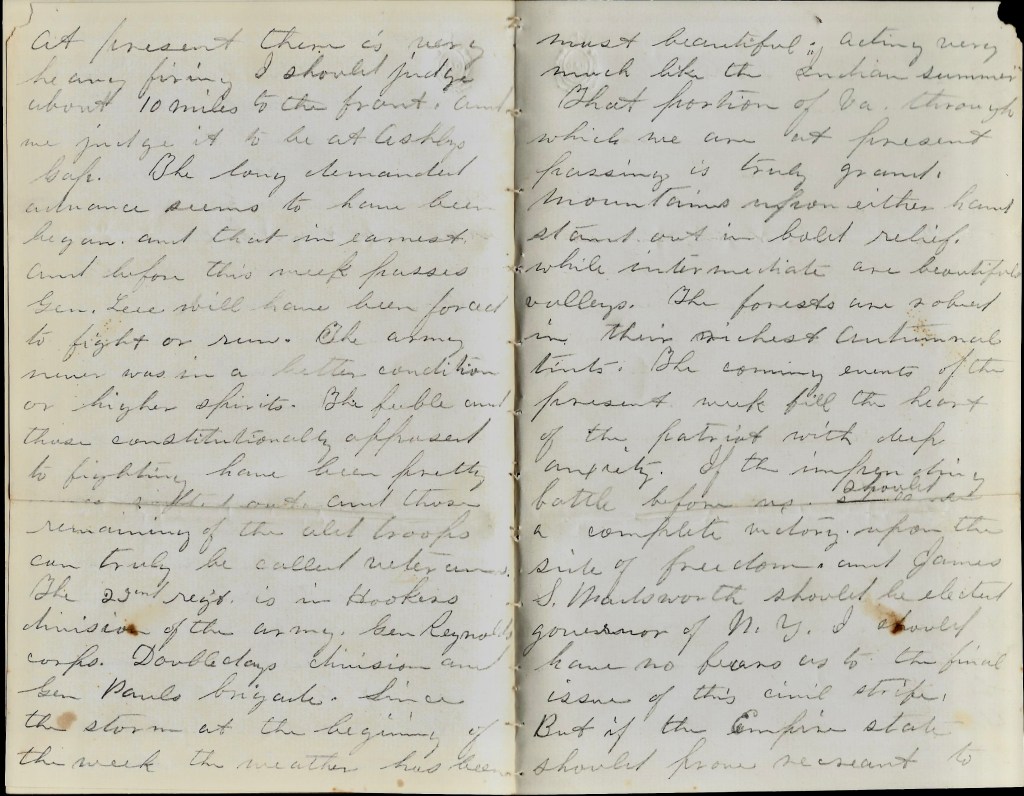 At present there is very
heavy firing I should judge
about 10 miles to the front. and
we judge it to be at Ashbys
Gap. The long demanded
advance seems to have been
began. and that in earnest.
and before this week passes
Gen. Lee will have been forced
to fight or run. The army
never was in a better condition
or higher spirits. The feeble and
those constitutionally opposed
to fighting have been pretty
out. and those
remaining of the old troops
can truly be called veterans.
The 22nd regt. is in Hookers
division of the army. Gen Reynolds
corps. Doubledays division and
Gen Pauls brigade. Since
the storm at the begining of
the week the weather has been
most beautiful; acting very
much like the "Indian summer"
That portion of Va. through
which we are at present
passing is truly grand.
Mountains upon either hand
stand out in bold relief.
while intermediate are beautiful
valleys. The forests are robed
in their richest autumnal
tints. The coming events of the
present week fill the heart
of the patriot with deep
anxiety. If the impending
battle before us. should
a complete victory. upon the
side of freedom. and James
S. Wadsworth should be elected
governor of N. Y. I should
have no fears as to the final
issue of this civil strife.
But if the Empire state
should prove recreant to